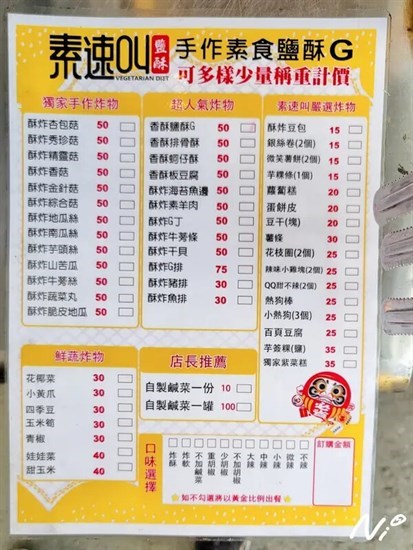 素速叫 鹽酥
VEGETARIAN DIET
手作素食鹽酥G
可多樣少量稱重計價
獨家手作炸物
酥炸杏包菇 50
酥炸秀珍菇 50
酥炸精靈菇 50
酥炸香菇 50
酥炸金針菇 50
酥炸綜合菇 50
酥炸地瓜絲 50
酥炸南瓜絲 50
酥炸芋頭絲 50
酥炸山苦瓜 50
酥炸牛蒡絲 50
酥炸蔬菜丸 50
酥炸脆皮地瓜 50
超人氣炸物
香酥鹽酥G 50
香酥排骨酥 50
香酥蚵仔酥 50
香酥板豆腐 50
酥炸海苔魚邊 50
酥炸素羊肉 50
酥炸G丁 50
酥炸牛蒡條 50
酥炸干貝 50
酥炸G排 75
酥炸豬排 30
酥炸魚排 30
素速叫嚴選炸物
酥炸豆包 15
銀絲卷(2個) 15
微笑薯餅(2個) 15
芋粿條(1個) 15
蘿蔔糕 20
蛋餅皮 20
豆干(塊) 20
薯條 30
花枝圈(2個) 35
辣味小雞塊(2個) 35
QQ甜不辣(2個) 35
熱狗棒 35
小熱狗(3個) 35
百頁豆腐 35
芋簽粿(鹽) 35
獨家紫菜糕 35
鮮蔬炸物
花椰菜 30
小黃爪 30
四季豆 30
玉米筍 30
青椒 30
娃娃菜 40
甜玉米 40
店長推薦
自製鹹菜一份 10
自製鹹菜一罐 100
口味選擇
炸酥
炸軟
不加鹹菜
重胡椒
少胡椒
不加胡椒
大辣
中辣
小辣
微辣
不辣
★如不勾選將以黃金比例出餐★
訂購金額
Nio